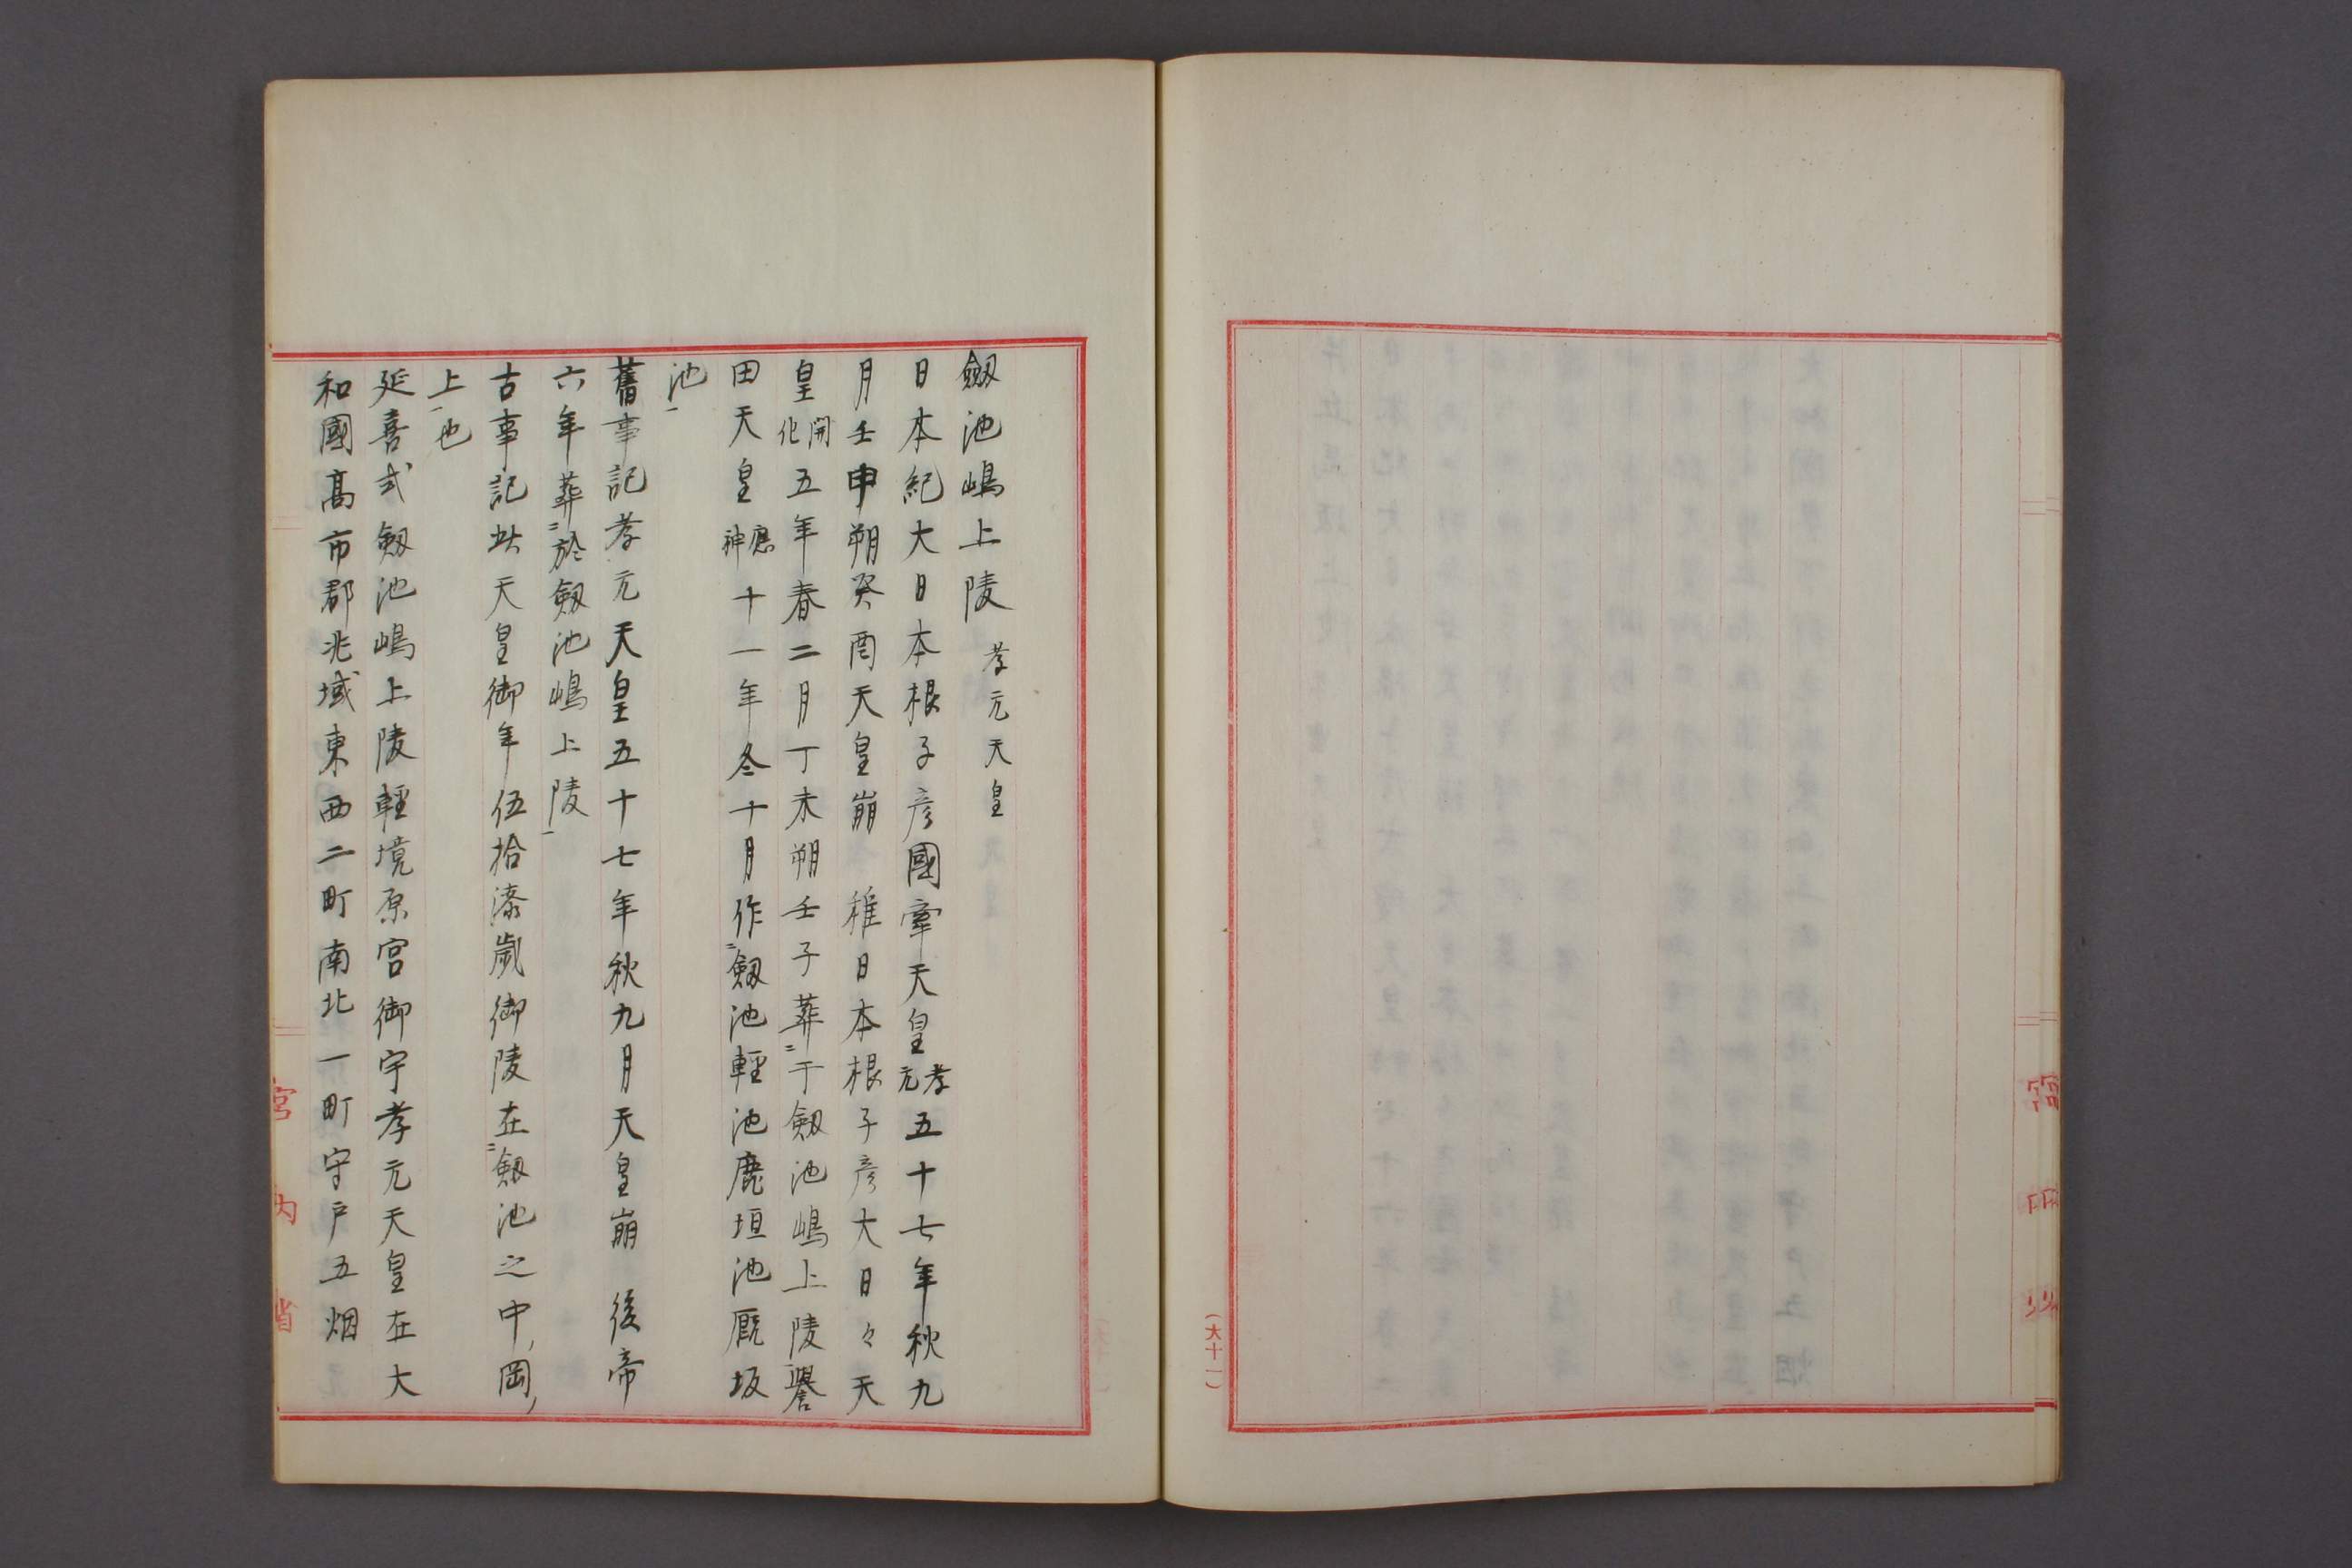 宮内省
(大十一)
劔池嶋上陵 孝元天皇
日本紀大日本根子彦國牽天皇孝元五十七年秋九
月壬申朔癸酉天皇崩 稚日本根子彦大日々天
皇開化五年春二月丁未朔壬子葬二于劔池嶋上陵一譽
田天皇應神十一年冬十月作二劔池輕池鹿垣池厩坂
池一
舊事記孝元天皇五十七年秋九月天皇崩 後帝
六年葬二於劔池嶋上陵一
古事記此天皇御年伍拾漆歲御陵在二劔池之中岡
上一也
延喜式劔池嶋上陵輕境原宮御宇孝元天皇在大
和國高市郡兆域東西二町南北一町守戸五烟
宮内省